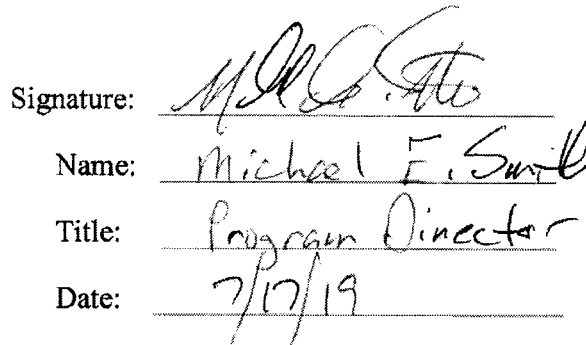 Signature:
Name: Michael E. Smith
Title: Program Director
Date: 7/17/19